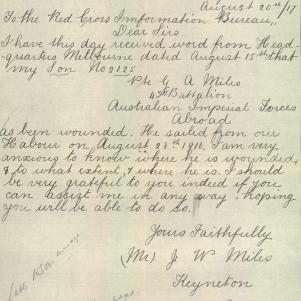 August 20th/17
To the Red Cross Imformation Bureau,
Dear Sirs
I have this day received word from Head-
quarters Melbourne dated August 15th that
my Son No 2125
Pte G A Miles
45th Battalion
Australian Imperial Forces
Abroad
as been wounded. He sailed from our
Habour on August 28th 1916. I am very
anxious to know where he is wounded
& to what extent, & where he is. I should
be very grateful to you indeed if you
can assist me in any way. hoping
you will be able to do so.
Yours Faithfully
(Mr) J W Miles
Keyneton